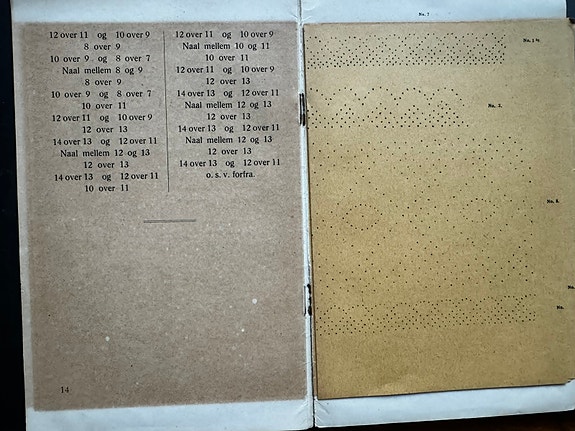 12 over 11 og 10 over 9
8 over 9
10 over 9 og 8 over 7
Naal mellem 8 og 9
8 over 9
10 over 9 og 8 over 7
10 over 11
12 over 11 og 10 over 9
12 over 13
14 over 13 og 12 over 11
Naal mellem 12 og 13
12 over 13
14 over 13 og 12 over 11
10 over 11
12 over 11 og 10 over 9
Naal mellem 10 og 11
10 over 11
12 over 11 og 10 over 9
12 over 13
14 over 13 og 12 over 11
Naal mellem 12 og 13
12 over 13
14 over 13 og 12 over 11
Naal mellem 12 og 13
12 over 13
14 over 13 og 12 over 11
o. s. v. forfra.
14
No. 3.
No.
No.